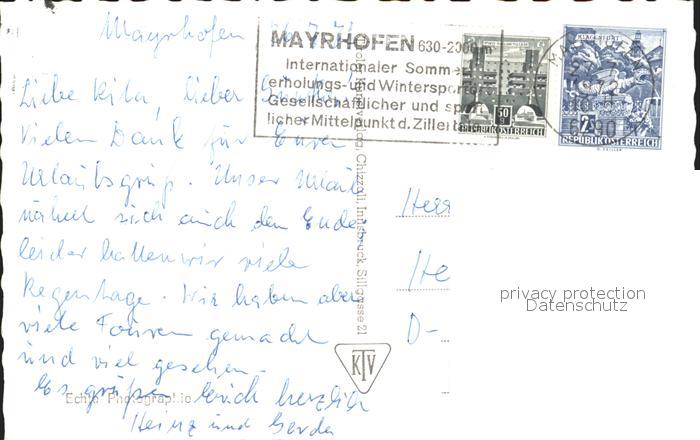 Mayrhofen
MAYRHOFEN 630-2000 m
Internationaler Somme
erholungs- und Wintersport
Gesellschaftlicher und sport
licher Mittelpunkt d. Zillertal
KLAGENFURT
50 g
REPUBLIK ÖSTERREICH
2 S
REPUBLIK ÖSTERREICH
6290
Liebe Rita, lieber
Vielen Dank für Euren
Urlaubsgruß. Unser Urlaub
nähert sich auch dem Ende
leider hatten wir viele
Regentage. Wir haben aber
viele Touren gemacht
und viel gesehen.
Es grüßen Euch herzlich
Heinz und Gerda
Echte Photographie
Chizzali, Innsbruck, Sillgasse 21
KTV
Herr
He
D-
privacy protection
Datenschutz